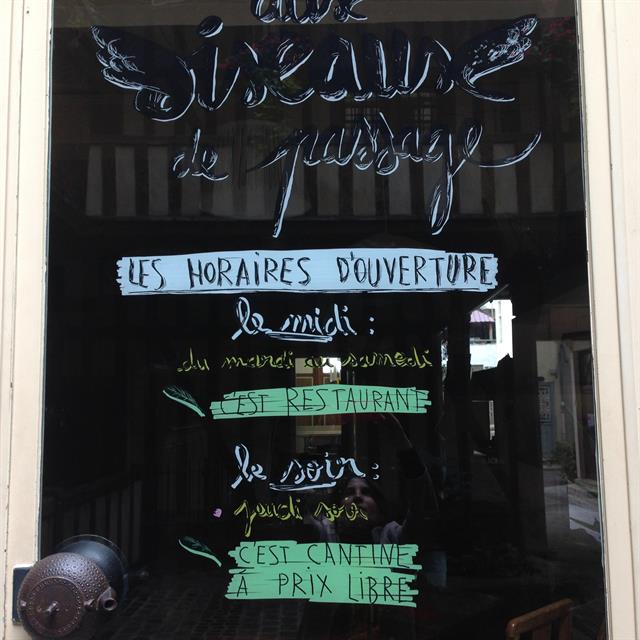 aux
Oiseaux
de passage
LES HORAIRES D'OUVERTURE
le midi :
du mardi au samedi
C'EST RESTAURANT
le soir :
jeudi soir
C'EST CANTINE
À PRIX LIBRE